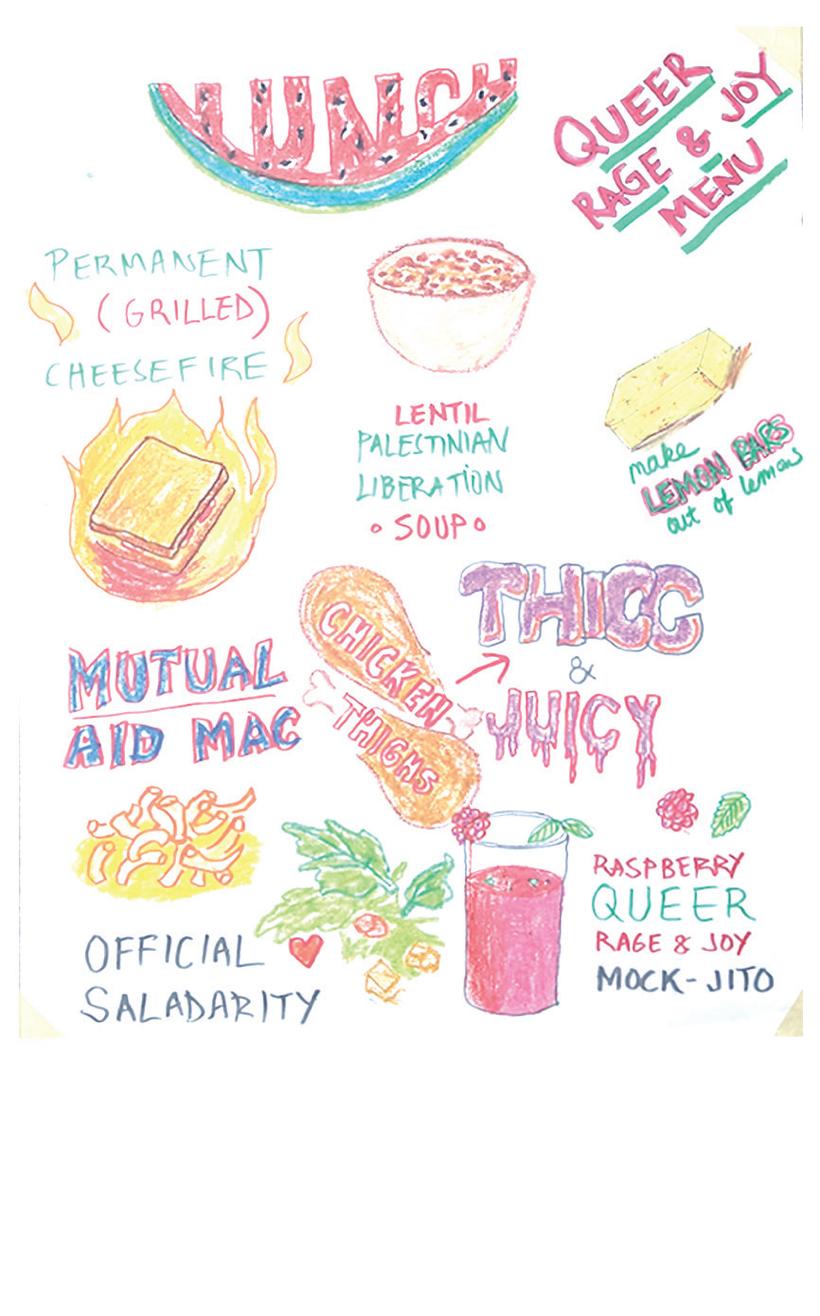 LUNCH
QUEER
RAGE & JOY
MENU
PERMANENT
(GRILLED)
CHEESEFIRE
LENTIL
PALESTINIAN
LIBERATION
SOUP
make
LEMON BARS
out of lemons
MUTUAL
AID MAC
CHICKEN
THIGHS
THICC
&
JUICY
OFFICIAL
SALADARITY
RASPBERRY
QUEER
RAGE & JOY
MOCK-JITO